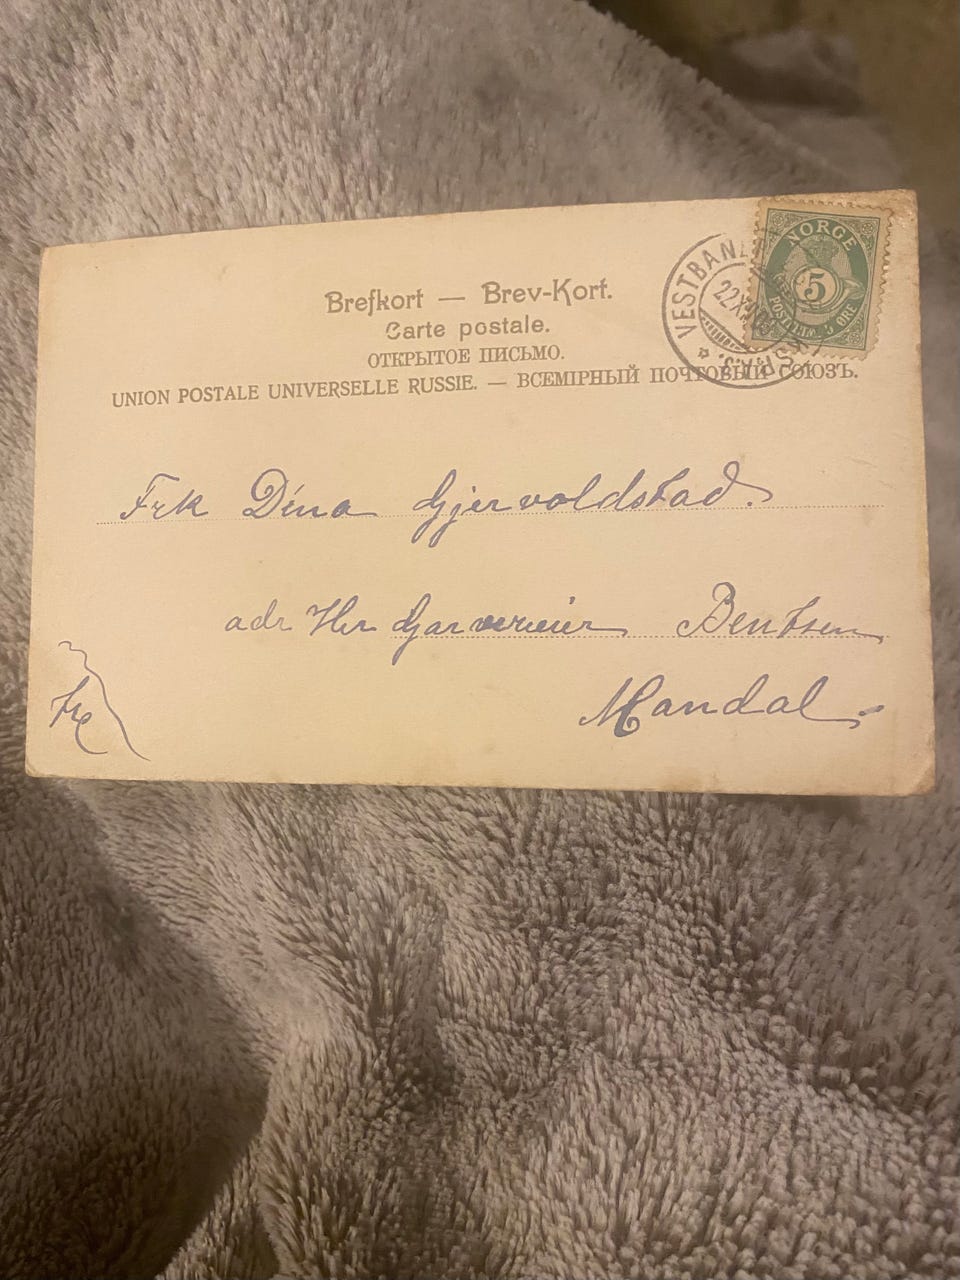 Brefkort — Brev-Kort.
Carte postale.
ОТКРЫТОЕ ПИСЬМО.
UNION POSTALE UNIVERSELLE RUSSIE. — ВСЕМІРНЫЙ ПОЧТОВЫЙ СОЮЗЪ.
NORGE
5
POSTFRIM. 5 ØRE
VESTBANE
22 XII
Frk Dina Gjervoldstad.
adr Hr Garverieier Bentsen
Mandal